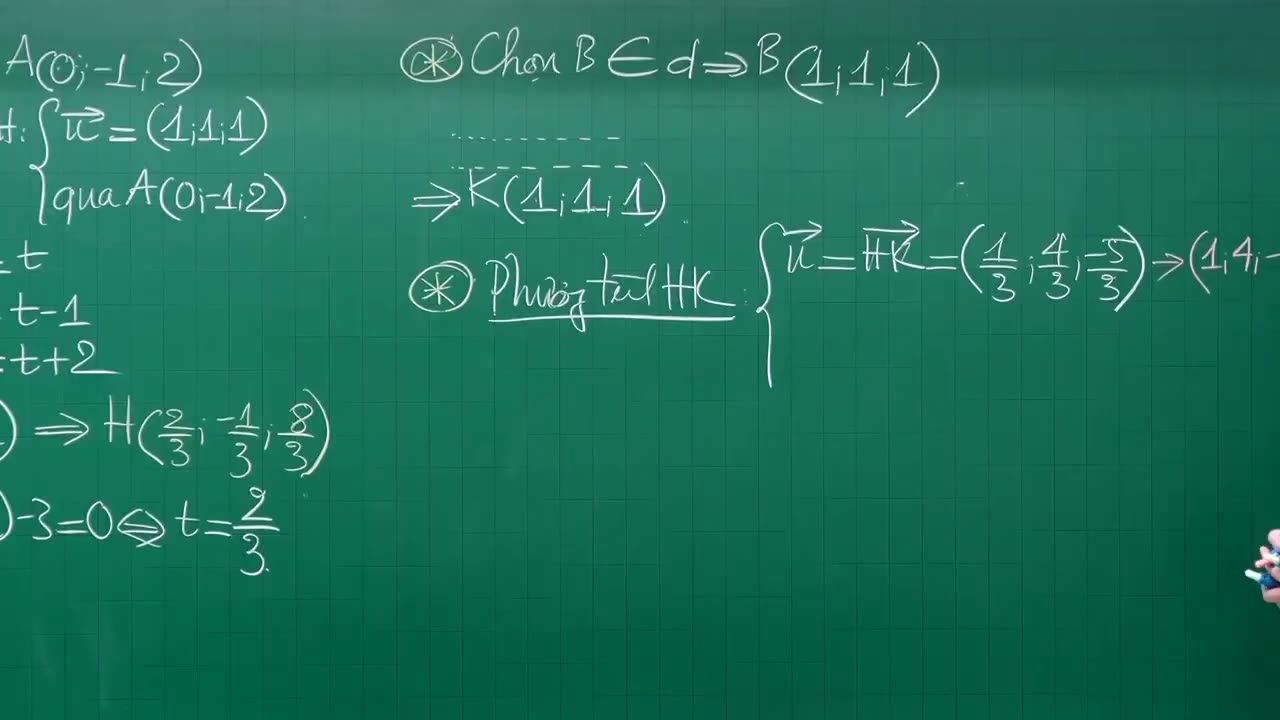 A(0;-1;2)
t: { u⃗ = (1;1;1)
qua A(0;-1;2)
= t
= t-1
= t+2
) ⇒ H(2/3; -1/3; 8/3)
)-3=0 ⇔ t = 2/3
⊛ Chọn B ∈ d ⇒ B(1;1;1)
⇒ K(1;1;1)
⊛ Phương trình HK: { u⃗ = HK⃗ = (1/3; 4/3; -5/3) → (1;4;-